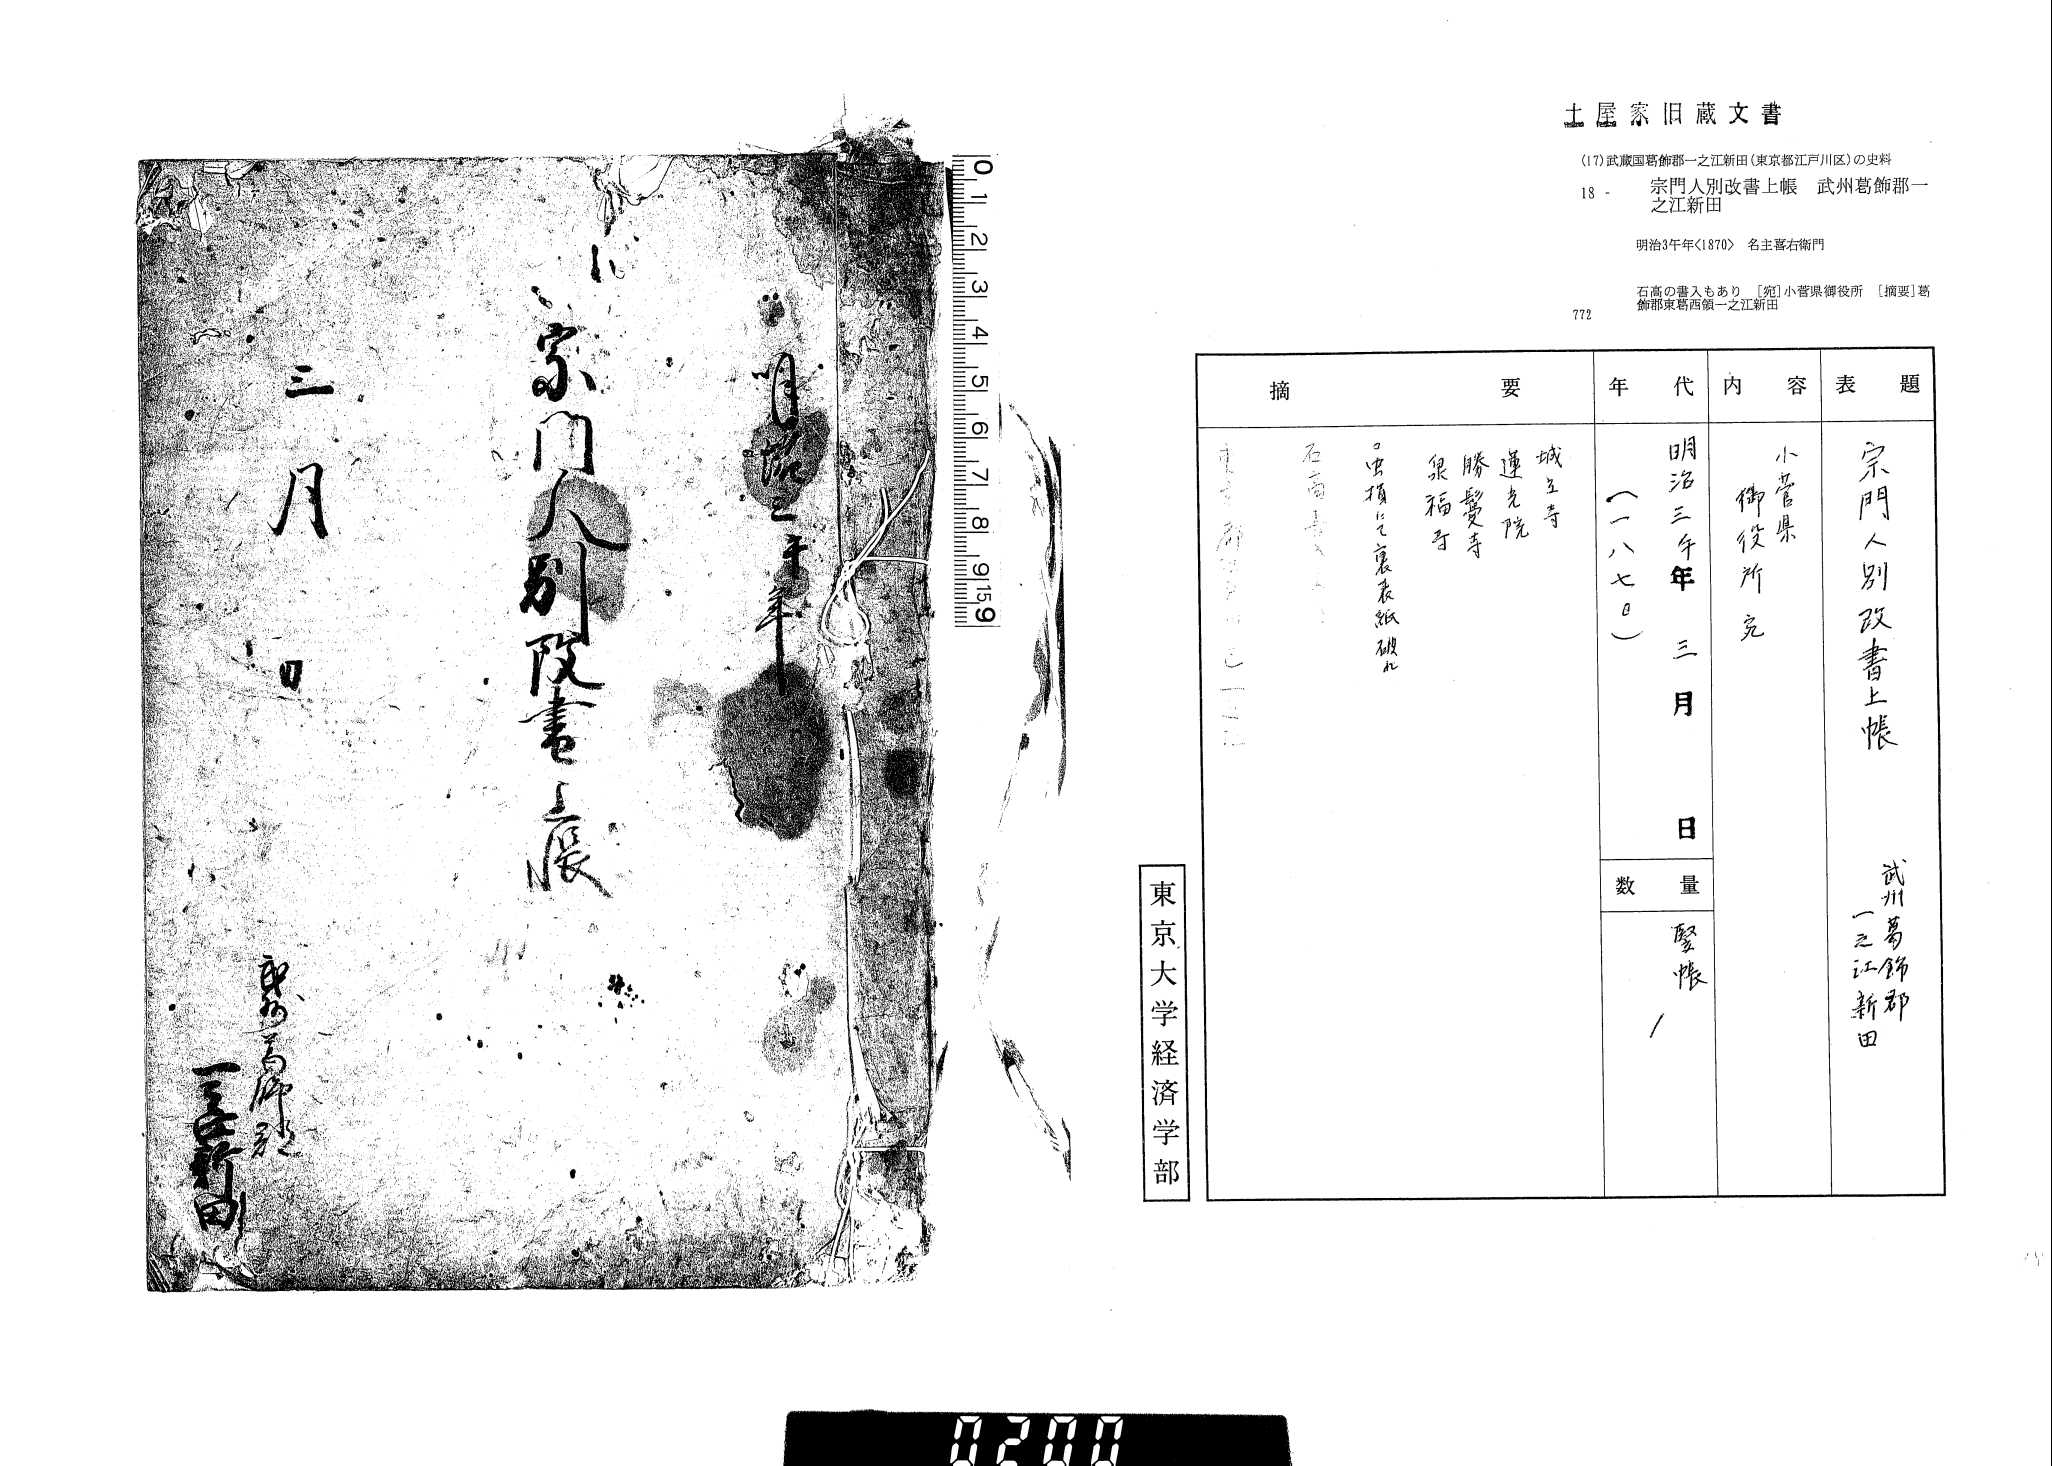 土屋家旧蔵文書
(17)武蔵国葛飾郡一之江新田(東京都江戸川区)の史料
18 - 宗門人別改書上帳　武州葛飾郡一
之江新田
明治3午年<1870>　名主喜右衛門
石高の書入もあり　[宛]小菅県御役所　[摘要]葛
飾郡東葛西領一之江新田
772
表題
宗門人別改書上帳
武州葛飾郡
一之江新田
内容
小菅県
御役所 宛
年代
明治三午年 三月 日
(一八七〇)
数量
竪帳
1
摘要
城立寺
蓮光院
勝鬘寺
泉福寺
虫損にて裏表紙破れ
東京大学経済学部
明治三午年
宗門人別改書上帳
三月 日
武州葛飾郡
一之江新田
0 1 2 3 4 5 6 7 8 9 15 9
0200